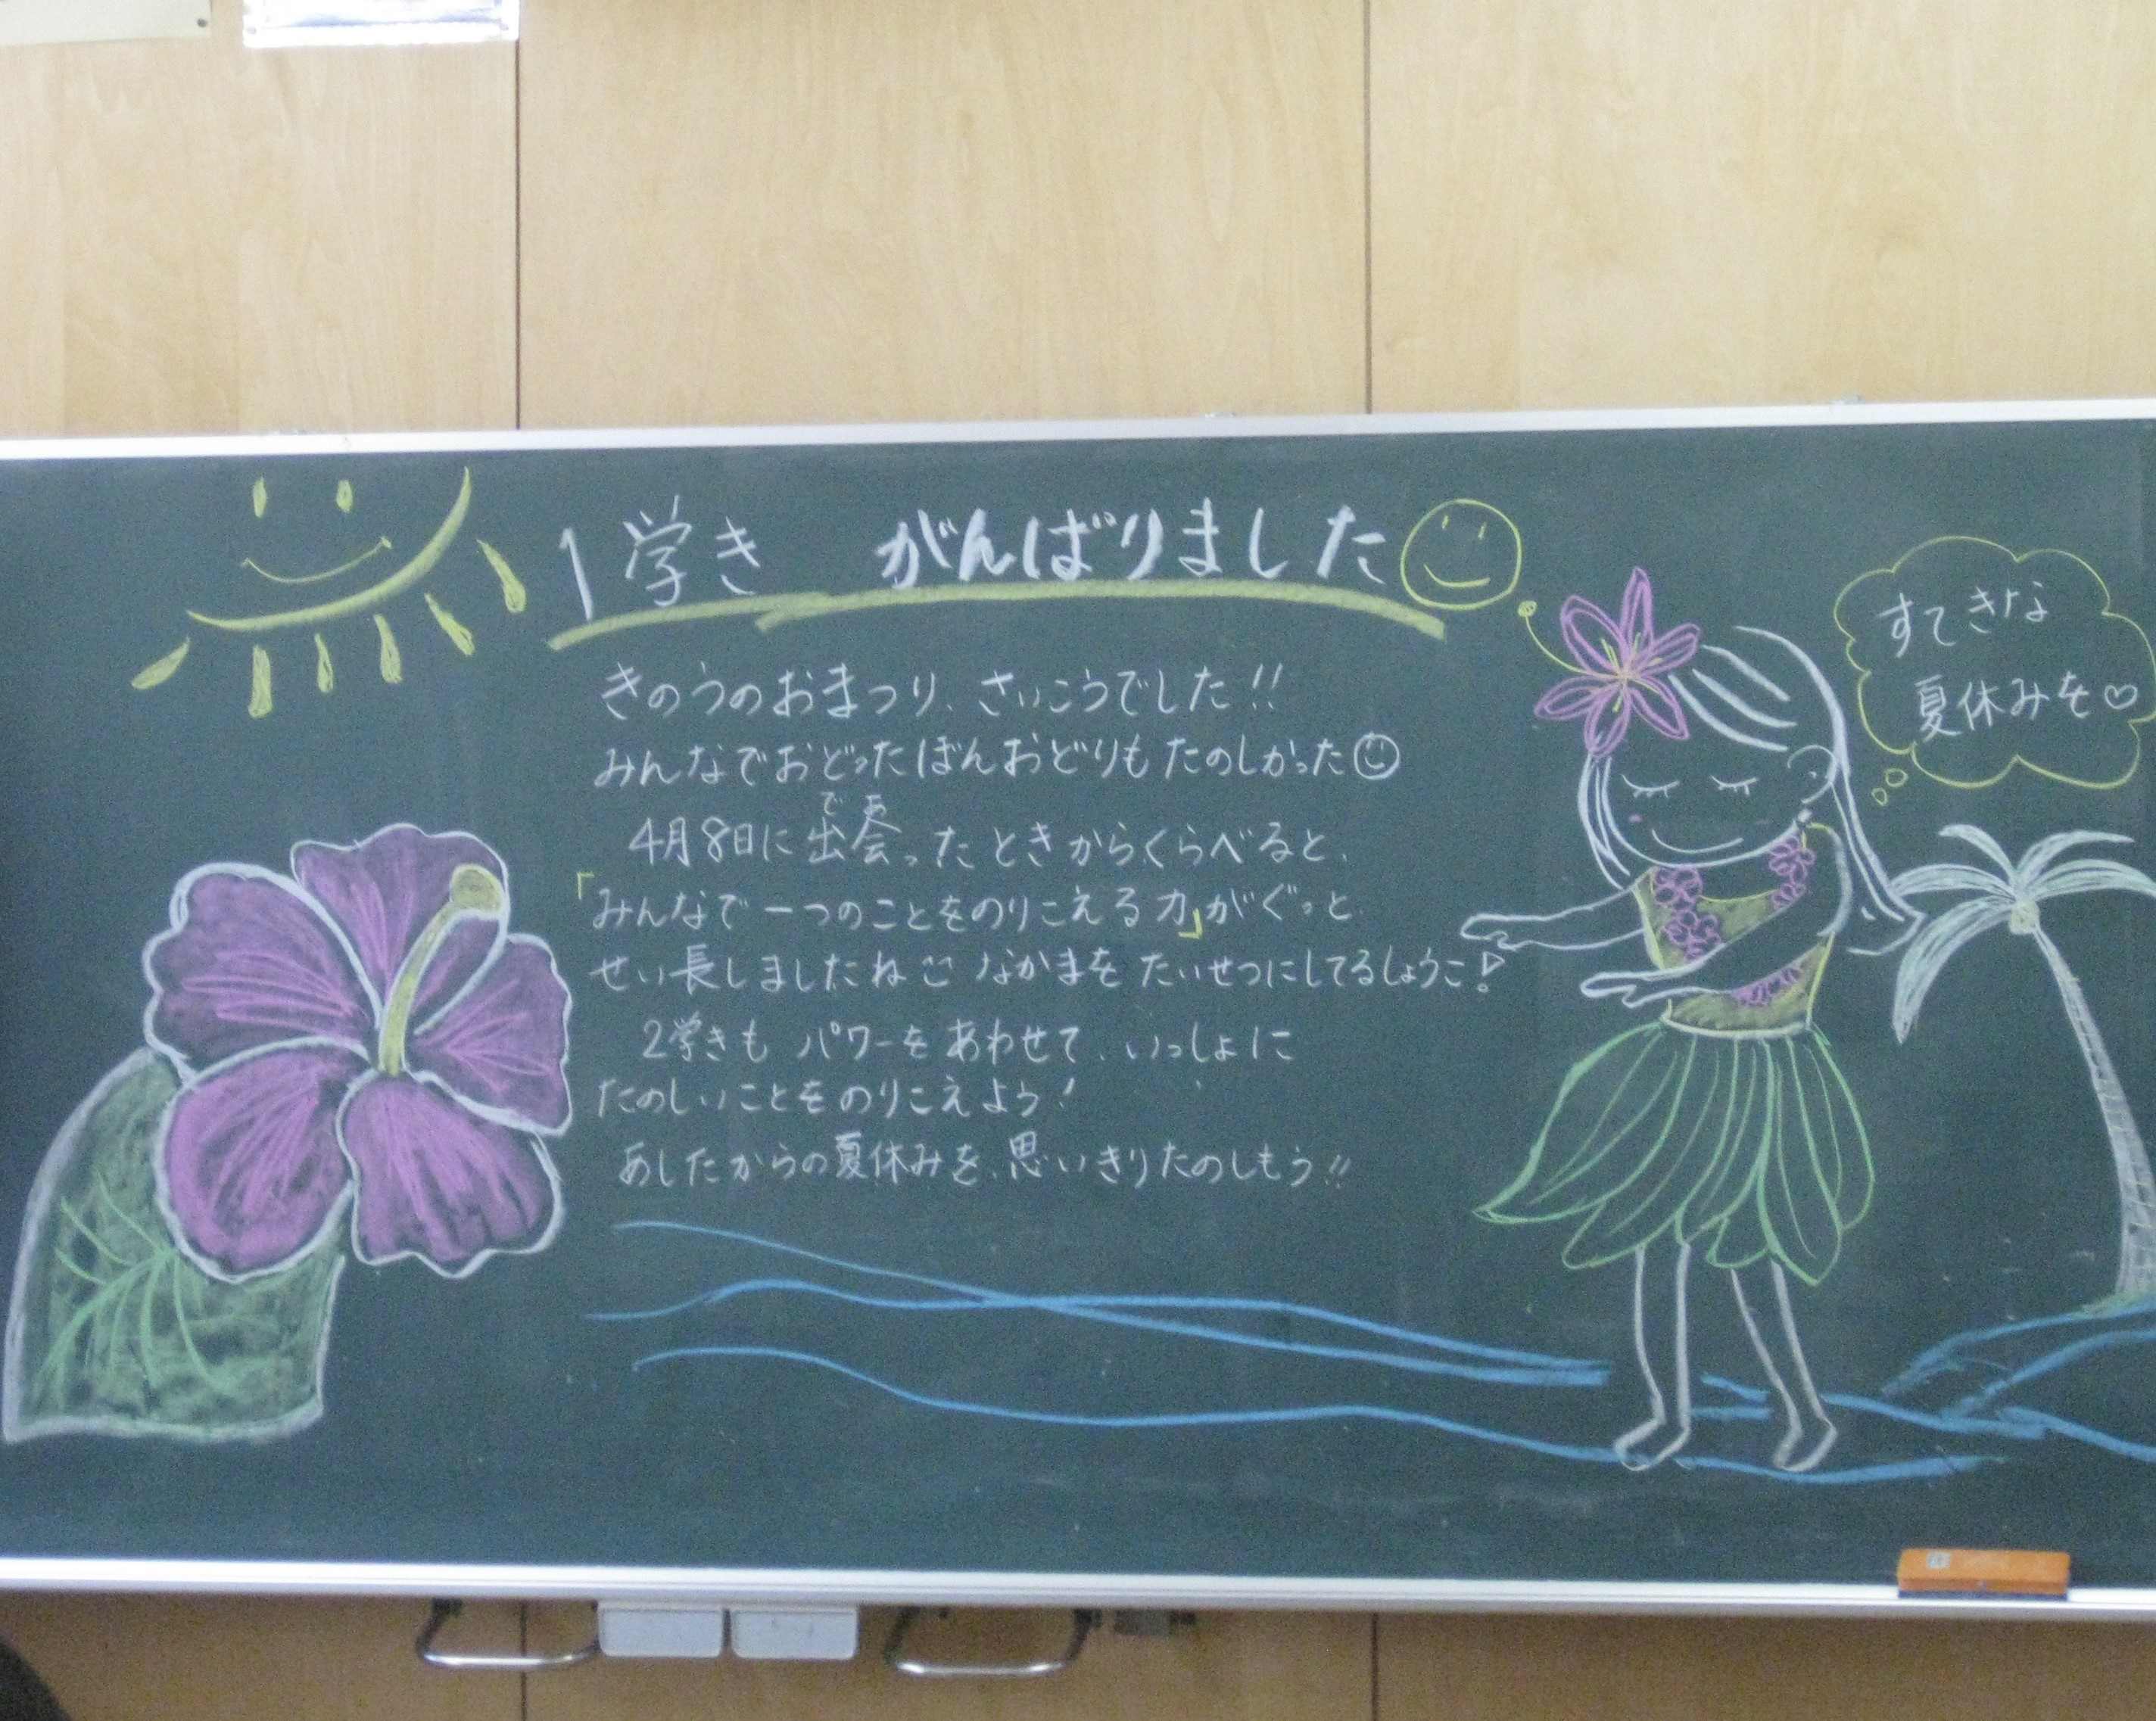 1学き がんばりました
きのうのおまつり、さいこうでした!!
みんなでおどったぼんおどりもたのしかった
4月8日に出会ったときからくらべると、
であ
「みんなで一つのことをのりこえる力」がぐっと
せい長しましたね なかまをたいせつにしてるしょうこ!
2学きも パワーをあわせて、いっしょに
たのしいことをのりこえよう!
あしたからの夏休みを、思いきりたのしもう!!
すてきな
夏休みを♡